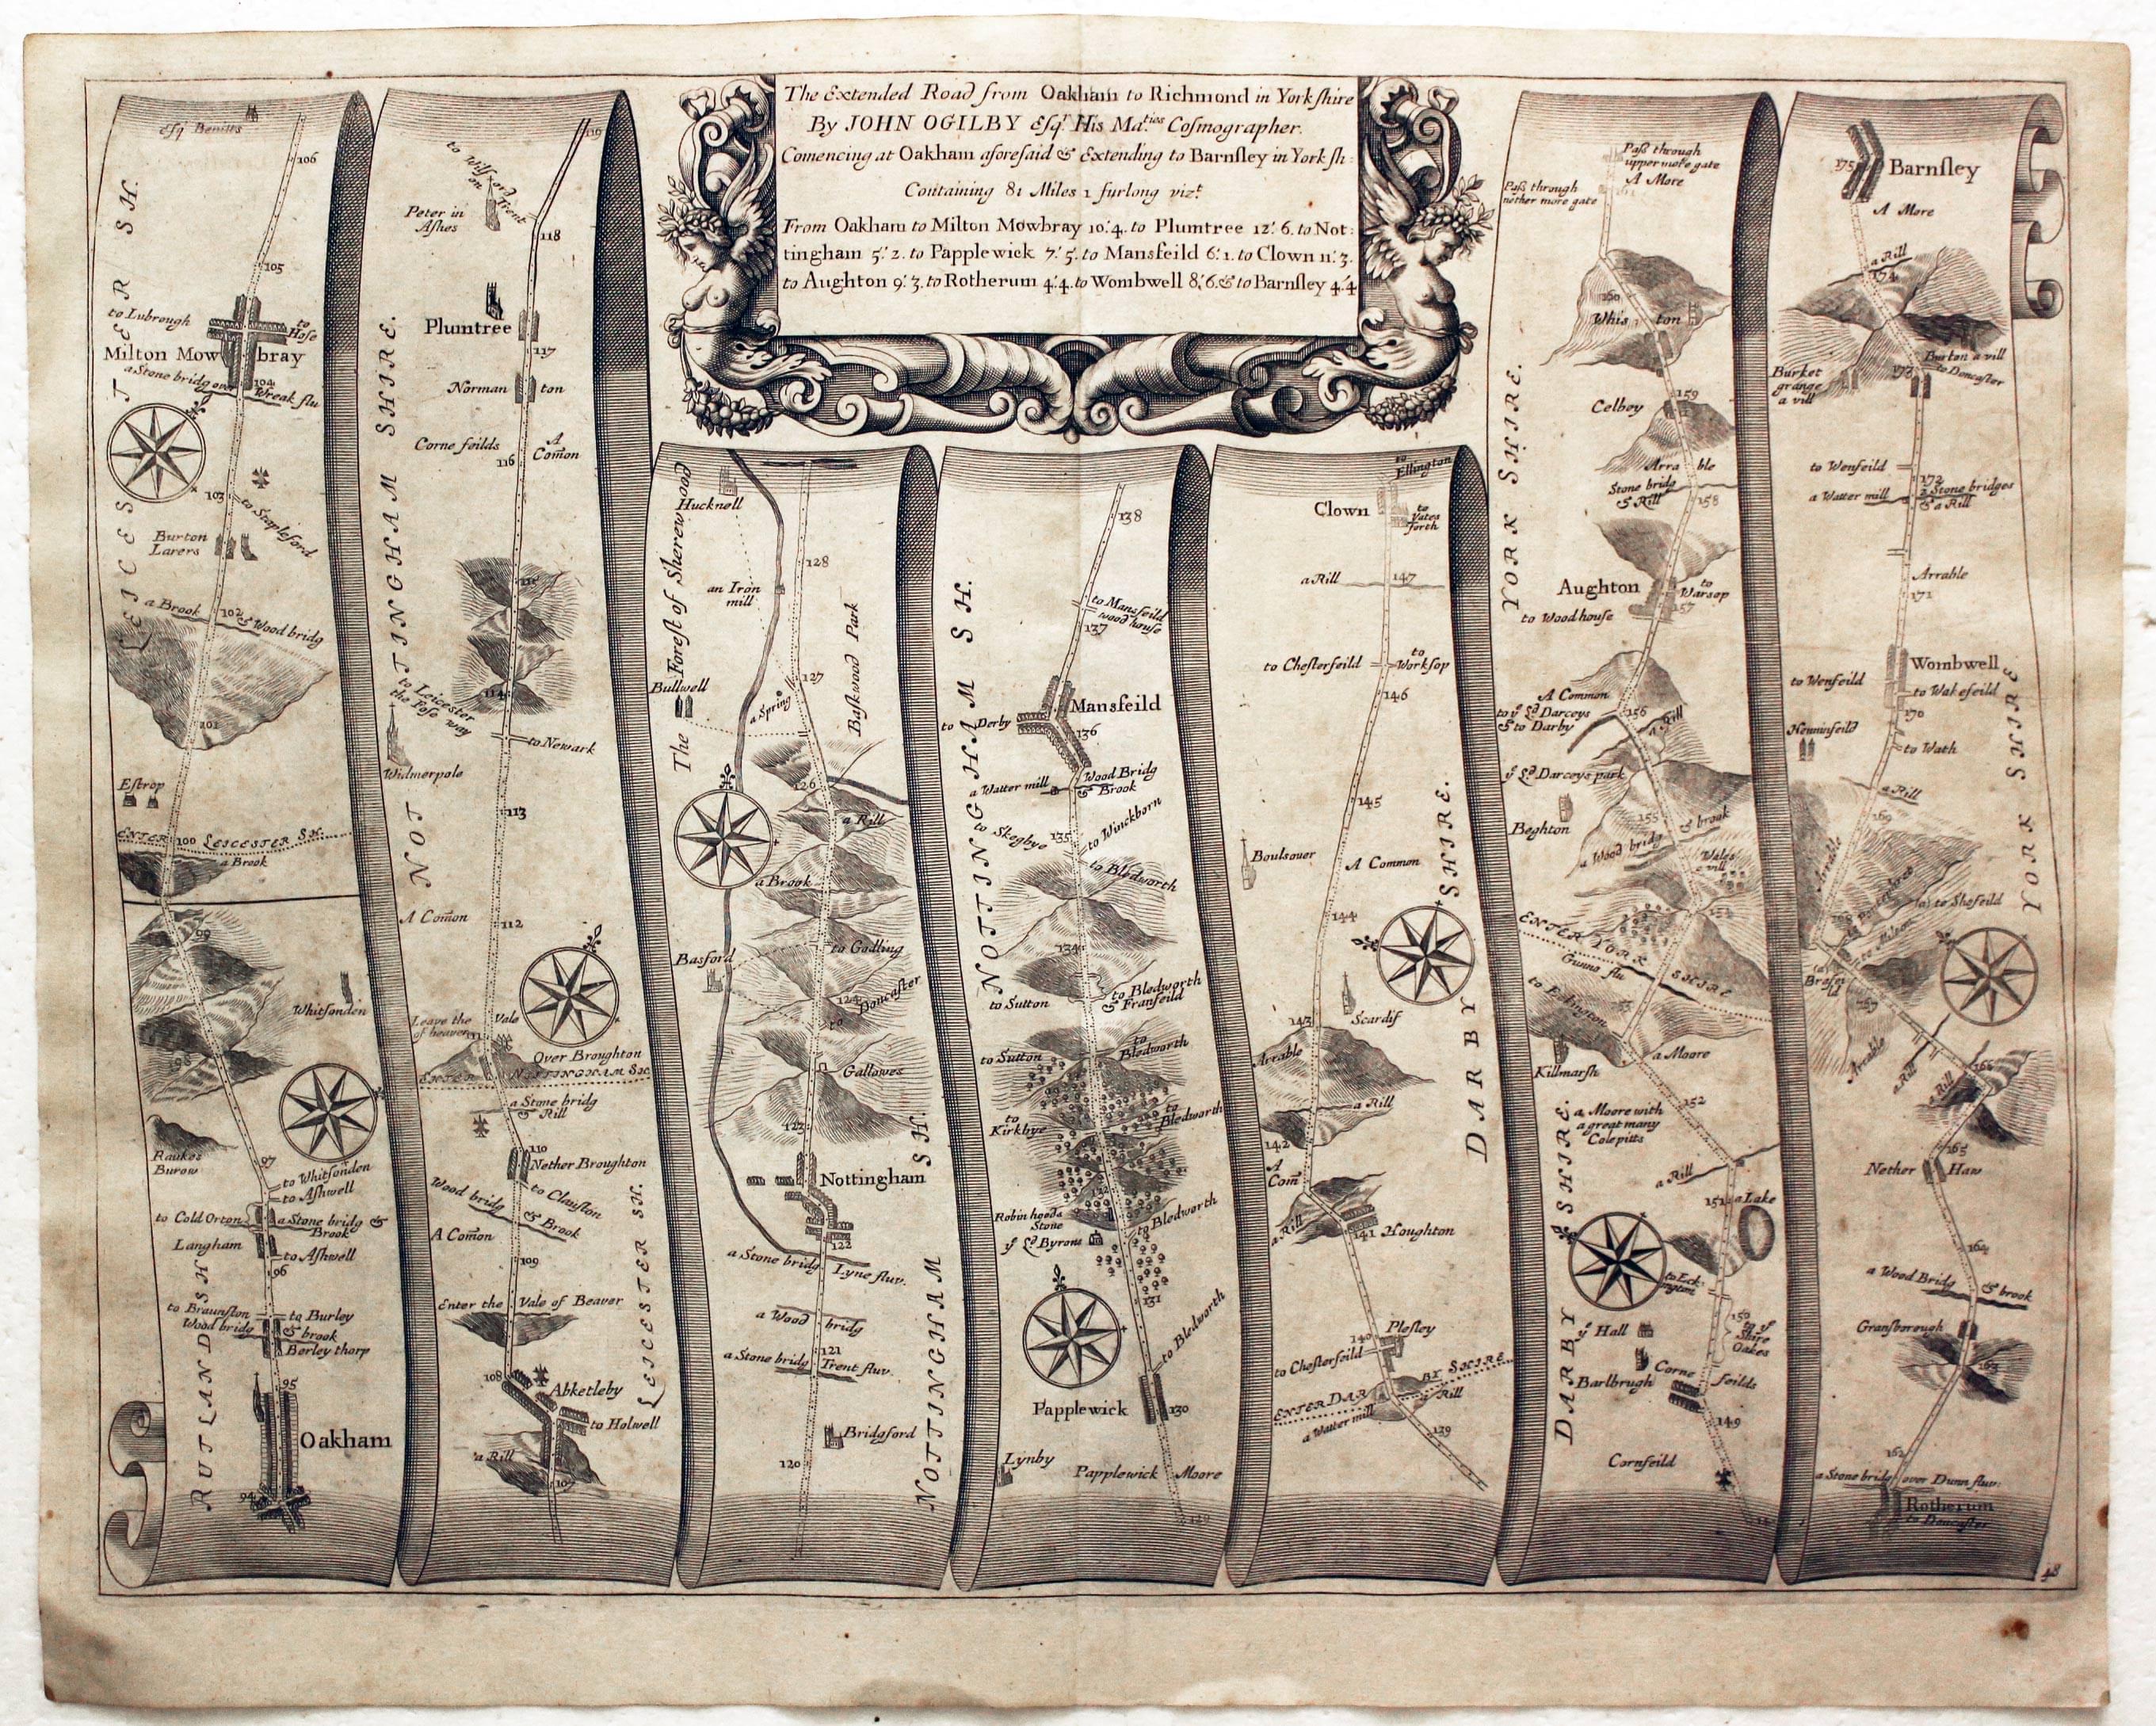 The Extended Road from Oakham to Richmond in Yorkshire
By JOHN OGILBY Esqr. His Maties Cosmographer.
Comencing at Oakham aforesaid & Extending to Barnsley in Yorksh:
Containing 81 Miles 1 furlong vizt.
From Oakham to Milton Mowbray 10'.4. to Plumtree 12'.6. to Not:
tingham 5'.2. to Papplewick 7'.5. to Mansfeild 6'.1. to Clown 11'.3.
to Aughton 9'.3. to Rotherum 4'.4. to Wombwell 8'.6. & to Barnsley 4'.4
Esqr. Benitts
106
105
to Lubrough
to Hose
Milton Mowbray
a Stone bridg over
104
Wreak flu
LEICESTER SH.
103
to Stapleford
Burton Larers
a Brook
102
& Wood bridg
101
Estrop
ENTER LEICESTER SH.
100
a Brook
99
Whitsonden
98
Raukes Burow
97
to Whitsonden
to Ashwell
to Cold Orton
a Stone bridg & Brook
Langham
to Ashwell
96
to Braunston
to Burley
Wood bridg
& brook
Berley thorp
95
RUTLAND SH
Oakham
94
119
to Wilford on Trent
Peter in Ashes
118
Plumtree
117
Norman ton
Corne feilds
A Comon
116
NOTTINGHAM SHIRE.
115
114
to Leicester the Fose way
to Newark
Widmerpole
113
A Comon
112
Leave the Vale of beaver
Over Broughton
ENTER NOTTINGHAM SH.
a Stone bridg & Rill
110
Nether Broughton
to Clauston
Wood bridg & Brook
A Comon
109
LEICESTER SH.
Enter the Vale of Beaver
108
Abketleby
to Holwell
a Rill
107
The Forest of Sherewood
Hucknell
128
an Iron mill
Baskwood Park
127
Bullwell
a Spring
126
a Rill
a Brook
to Godling
Basford
124
to Doncaster
Gallowes
123
Nottingham
122
a Stone bridg
Lyne fluv.
a Wood bridg
121
a Stone bridg
Trent fluv.
Bridgford
120
NOTTINGHAM SH.
138
to Mansfeild wood house
137
Mansfeild
to Derby
136
a Watter mill
Wood Bridg & Brook
to Skegbye
135
to Winckborn
to Bledworth
134
NOTTINGHAM SH.
to Sutton
to Bledworth & Franfeild
to Sutton
to Bledworth
to Kirkbye
to Bledworth
132
Robin hoods Stone
to Bledworth
ye Ld. Byrons
131
to Bledworth
Papplewick
130
Lynby
Papplewick Moore
129
to Ellington
Clown
to Yates forth
a Rill
147
to Chesterfeild
to Worksop
146
145
Boulsouer
A Common
144
DARBY SHIRE.
Scardif
143
Arrable
a Rill
142
A Com
a Rill
141
Houghton
140
Plesley
to Chesterfeild
ENTER DARBY SHIRE
Rill
a Watter mill
139
Pass through upper more gate
A More
Pass through nether more gate
160
Whis ton
159
Celbey
Arra ble
Stone bridg & Rill
158
YORK SHIRE.
Aughton
to Warsop
157
to Woodhouse
A Common
156
a Rill
to ye Ld. Darceys & to Darby
ye Ld. Darceys park
155
Beghton
a Wood bridg & brook
Wales a vill
ENTER YORK SHIRE
Gunno flu
Killmarsh
a Moore
152
a Moore with a great many Colepitts
a Rill
151
a Lake
to Eckington
150
ye Hall
to ye Shire Oakes
Barlbrugh
Corne feilds
149
Cornfeild
DARBY SHIRE.
175
Barnsley
A More
a Rill
174
Burton a vill
to Doncaster
Burket grange a vill
173
to Wenfeild
172
a Watter mill
2 Stone bridges & a Rill
Arrable
171
Wombwell
to Wenfeild
to Wakefeild
170
Hemminfeild
to Wath
a Rill
169
YORK SHIRE
Arrable
to Shefeild
167
Arrable
a Rill
a Rill
166
165
Nether Haw
164
a Wood Bridg & brook
Gransborough
163
162
a Stone bridg over Dunn fluv:
Rotherum
to Doncaster
48